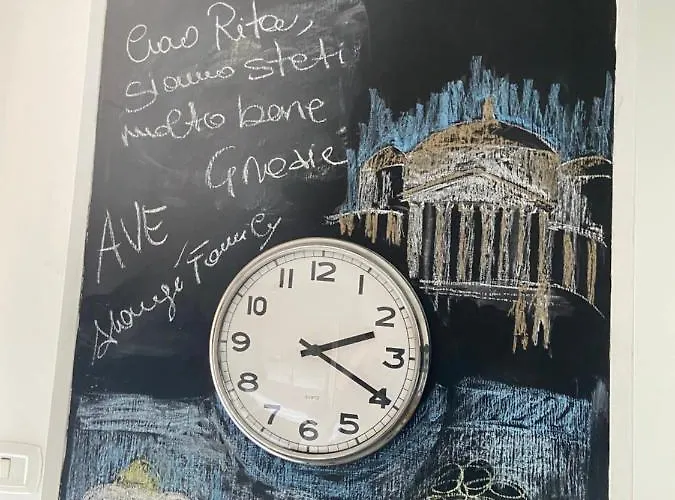 Ciao Rita,
siamo steti
molto bene
Grazie
AVE
Family
12
1
2
3
4
5
6
7
8
9
10
11
QUARTZ